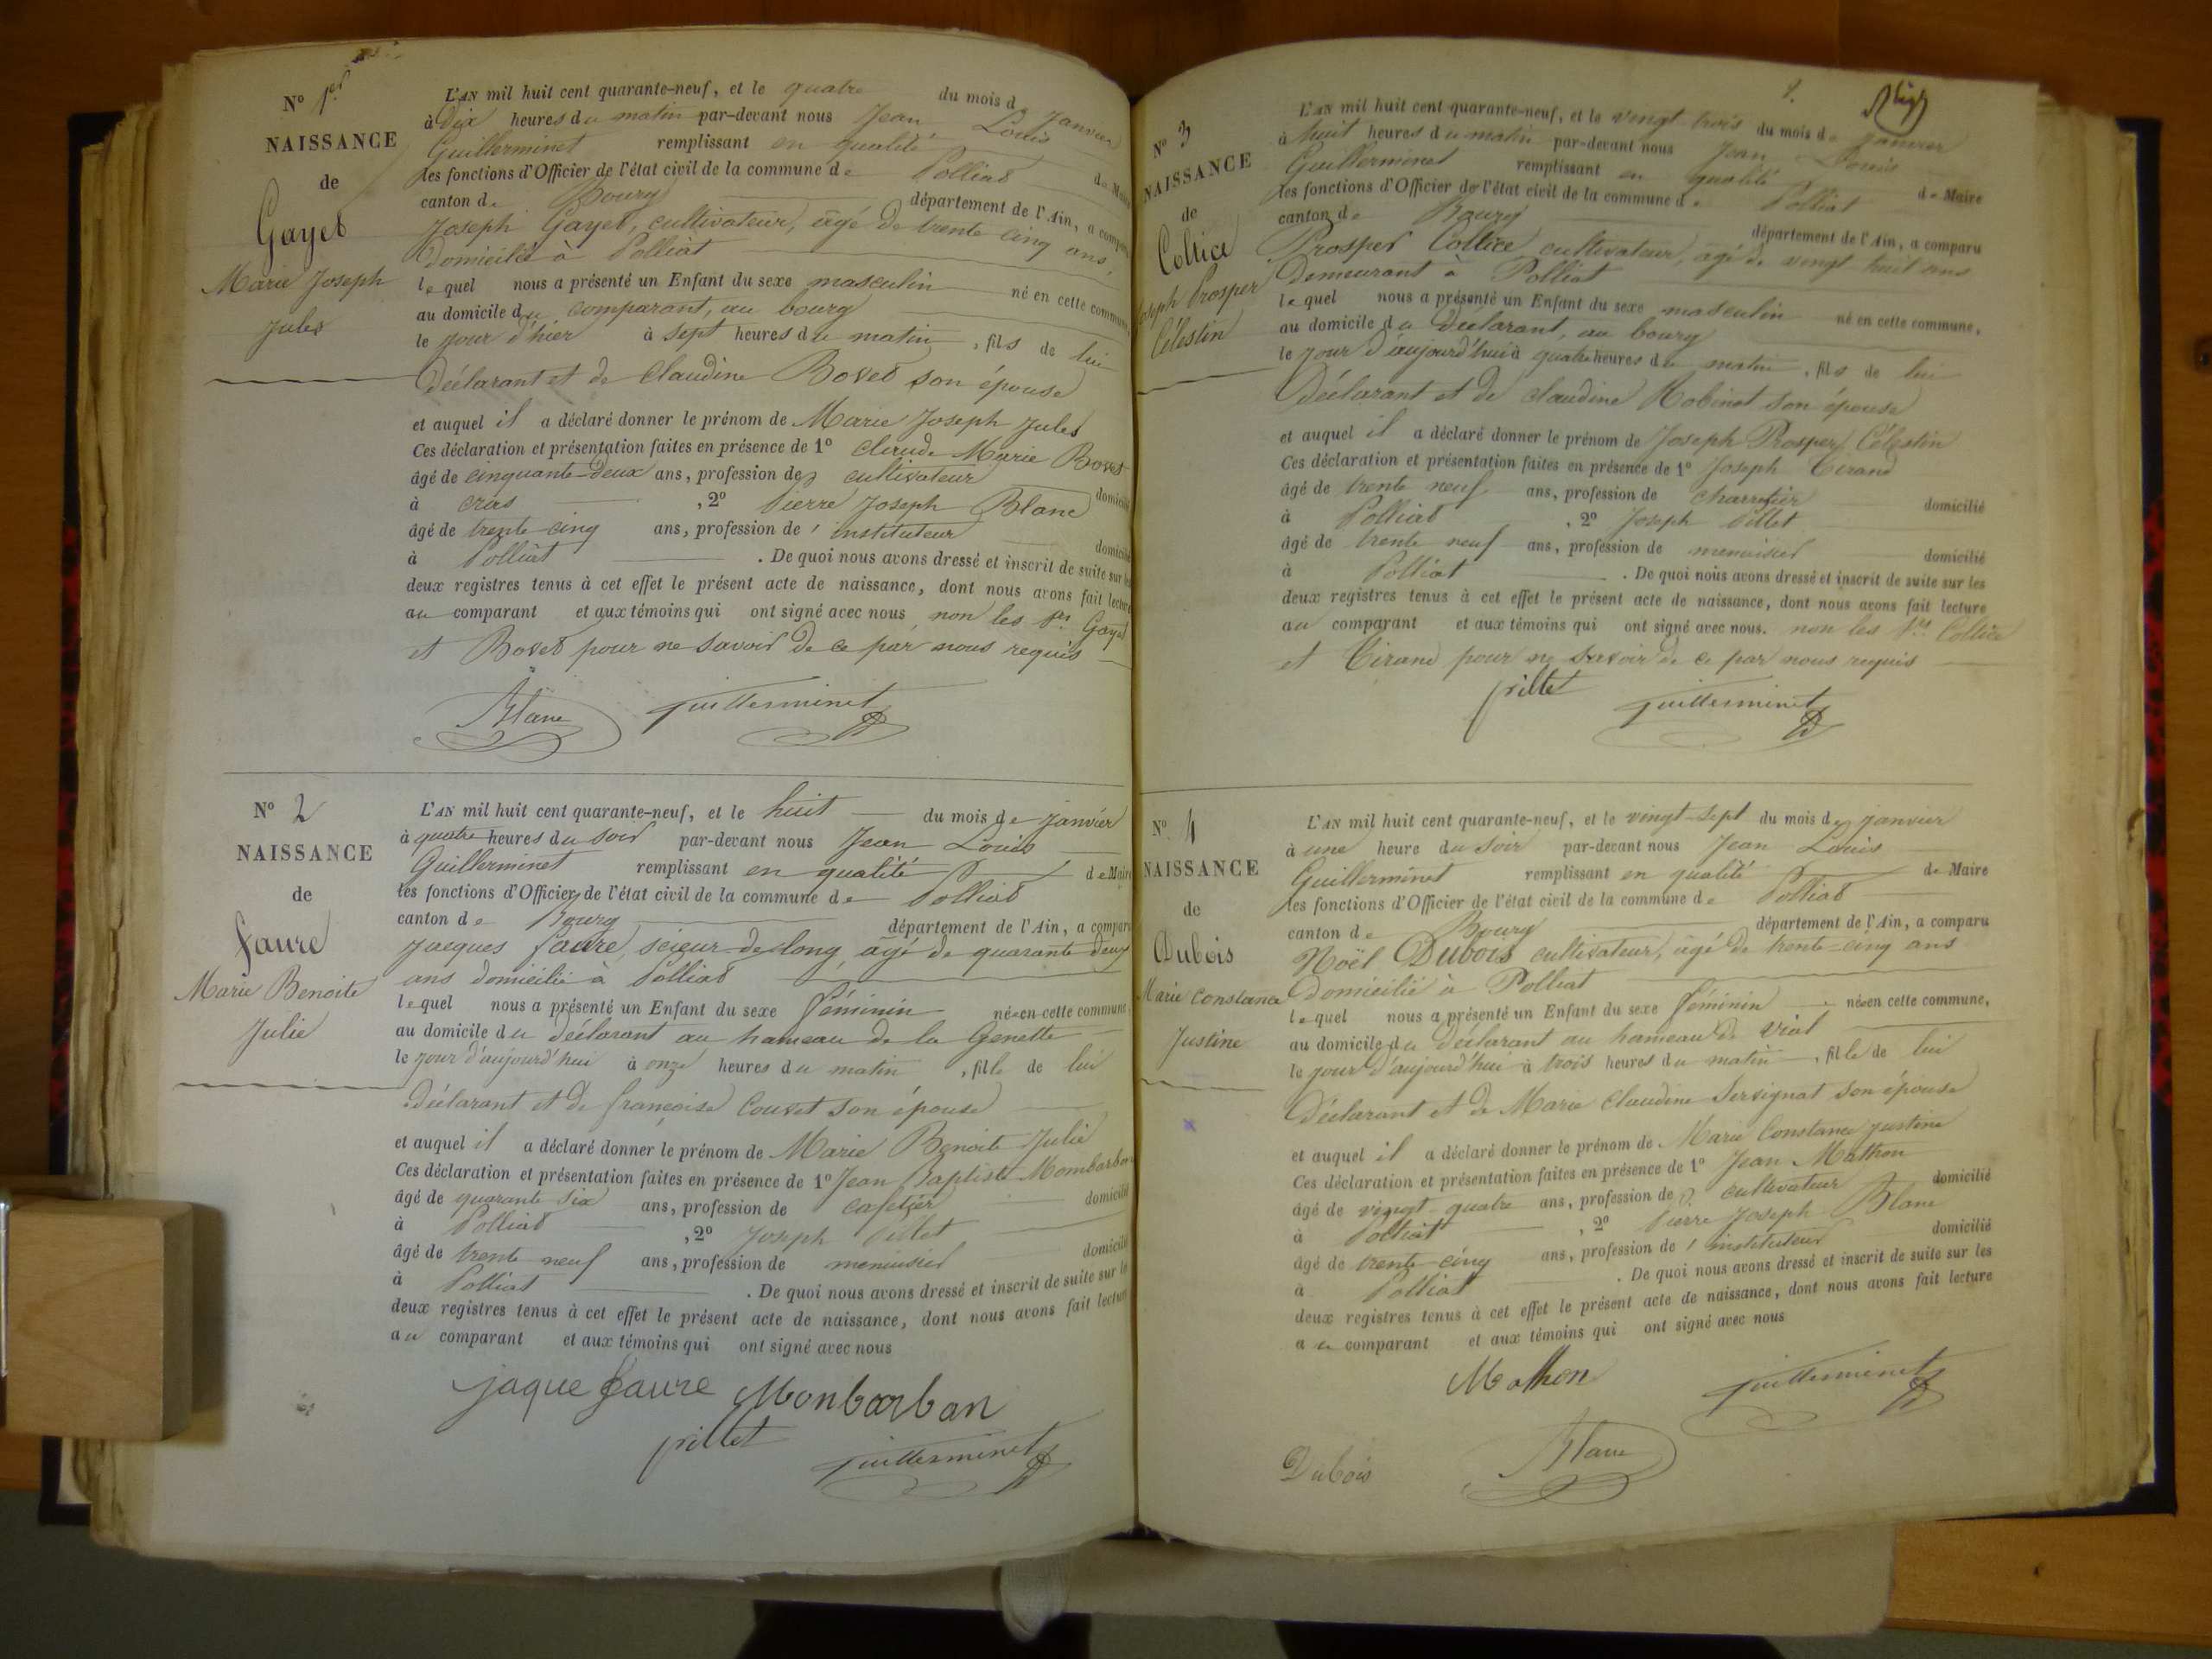 N° 1er
NAISSANCE
de
Gayet
Marie Joseph
Jules
L'AN mil huit cent quarante-neuf, et le quatre du mois de janvier
à Dix heures du matin par-devant nous Jean Louis
Guillerminet remplissant en qualité de Maire
les fonctions d'Officier de l'état civil de la commune de Polliat
canton de Bourg département de l'Ain, a comparu
Joseph Gayet, cultivateur, âgé de trente cinq ans,
Domicilié à Polliat
lequel nous a présenté un Enfant du sexe masculin né en cette commune,
au domicile du comparant, au bourg
le jour d'hier à sept heures du matin, fils de lui
Déclarant et de Claudine Bovet son épouse
et auquel il a déclaré donner le prénom de Marie Joseph Jules
Ces déclaration et présentation faites en présence de 1° Claude Marie Bovet
âgé de cinquante-deux ans, profession de cultivateur domicilié
à cras, 2° Pierre Joseph Blanc
âgé de trente cinq ans, profession d'instituteur domicilié
à Polliat. De quoi nous avons dressé et inscrit de suite sur les
deux registres tenus à cet effet le présent acte de naissance, dont nous avons fait lecture
au comparant et aux témoins qui ont signé avec nous, non les srs Gayet
et Bovet pour ne savoir de ce par nous requis
Blanc Guillerminet
N° 2
NAISSANCE
de
faure
Marie Benoite
Julie
L'AN mil huit cent quarante-neuf, et le huit du mois de janvier
à quatre heures du soir par-devant nous Jean Louis
Guillerminet remplissant en qualité de Maire
les fonctions d'Officier de l'état civil de la commune de Polliat
canton de Bourg département de l'Ain, a comparu
Jacques faure, scieur-de-long, âgé de quarante deux
ans domicilié à Polliat
lequel nous a présenté un Enfant du sexe féminin née en cette commune,
au domicile du déclarant au hameau de la Genette
le jour d'aujourd'hui à onze heures du matin, fille de lui
déclarant et de françoise Couvet son épouse
et auquel il a déclaré donner le prénom de Marie Benoite Julie
Ces déclaration et présentation faites en présence de 1° Jean Baptiste Mombarbon
âgé de quarante six ans, profession de cafetier domicilié
à Polliat, 2° Joseph Pillet
âgé de trente neuf ans, profession de menuisier domicilié
à Polliat. De quoi nous avons dressé et inscrit de suite sur les
deux registres tenus à cet effet le présent acte de naissance, dont nous avons fait lecture
au comparant et aux témoins qui ont signé avec nous
jaque faure Monbarban
pillet Guillerminet
N° 3
NAISSANCE
de
Coltice
Joseph Prosper
Célestin
L'AN mil huit cent quarante-neuf, et le vingt trois du mois de janvier
à huit heures du matin par-devant nous Jean Louis
Guillerminet remplissant en qualité de Maire
les fonctions d'Officier de l'état civil de la commune de Polliat
canton de Bourg département de l'Ain, a comparu
Prosper Coltice, cultivateur, âgé de vingt huit ans
Demeurant à Polliat
lequel nous a présenté un Enfant du sexe masculin né en cette commune,
au domicile du Déclarant, au bourg
le jour d'aujourd'hui à quatre heures du matin, fils de lui
Déclarant et de Claudine Robinet son épouse
et auquel il a déclaré donner le prénom de Joseph Prosper Célestin
Ces déclaration et présentation faites en présence de 1° Joseph Tirand
âgé de trente neuf ans, profession de charretier domicilié
à Polliat, 2° Joseph Pillet
âgé de trente neuf ans, profession de menuisier domicilié
à Polliat. De quoi nous avons dressé et inscrit de suite sur les
deux registres tenus à cet effet le présent acte de naissance, dont nous avons fait lecture
au comparant et aux témoins qui ont signé avec nous. non les srs Coltice
et Tirand pour ne savoir de ce par nous requis
pillet Guillerminet
N° 4
NAISSANCE
de
Dubois
Marie Constance
Justine
L'AN mil huit cent quarante-neuf, et le vingt-sept du mois de janvier
à une heure du soir par-devant nous Jean Louis
Guillerminet remplissant en qualité de Maire
les fonctions d'Officier de l'état civil de la commune de Polliat
canton de Bourg département de l'Ain, a comparu
Noël Dubois cultivateur, âgé de trente-cinq ans
Domicilié à Polliat
lequel nous a présenté un Enfant du sexe féminin née en cette commune,
au domicile du Déclarant au hameau de Vial
le jour d'aujourd'hui à trois heures du matin, fille de lui
Déclarant et de Marie Claudine Servignat son épouse
et auquel il a déclaré donner le prénom de Marie Constance Justine
Ces déclaration et présentation faites en présence de 1° Jean Mathon
âgé de vingt-quatre ans, profession de cultivateur domicilié
à Polliat, 2° Pierre Joseph Blanc
âgé de trente-cinq ans, profession d'instituteur domicilié
à Polliat. De quoi nous avons dressé et inscrit de suite sur les
deux registres tenus à cet effet le présent acte de naissance, dont nous avons fait lecture
au comparant et aux témoins qui ont signé avec nous
Mathon Guillerminet
Dubois Blanc